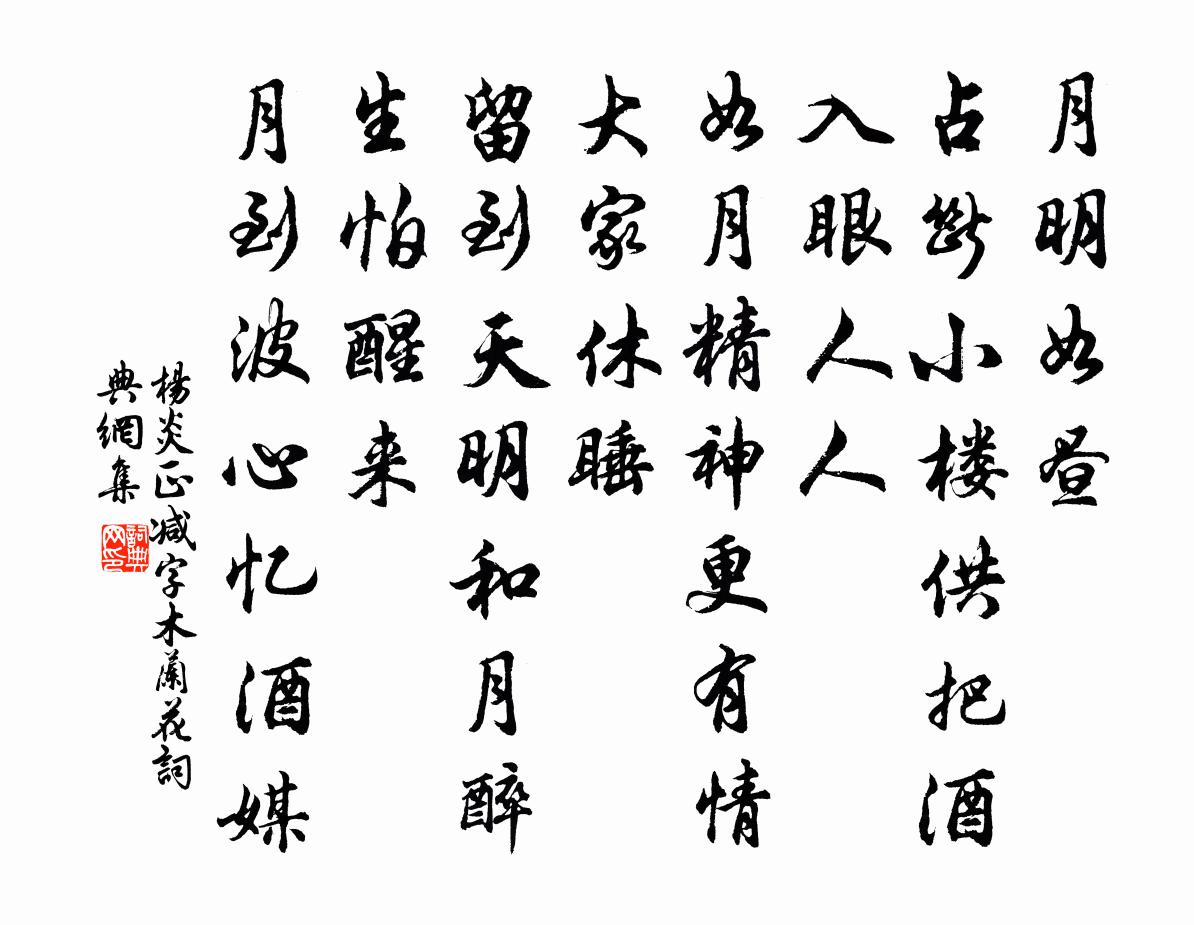 月明如昼
占断小楼供把酒
入眼人人
如月精神更有情
大家休睡
留到天明和月醉
生怕醒来
月到波心忆酒媒
楊炎正减字木蘭花詞
典網集
詞典
网印